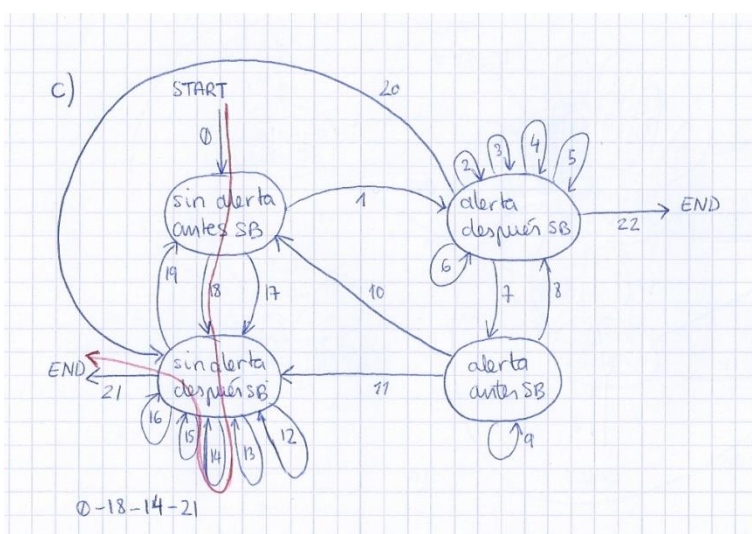 c)
START
20
0
2 3 4 5
sin alerta
antes SB
1
alerta
después SB
22
END
6
19
18
17
10
7
8
sin alerta
después SB
END
21
11
alerta
antes SB
9
16
15
14
13
12
0-18-14-21